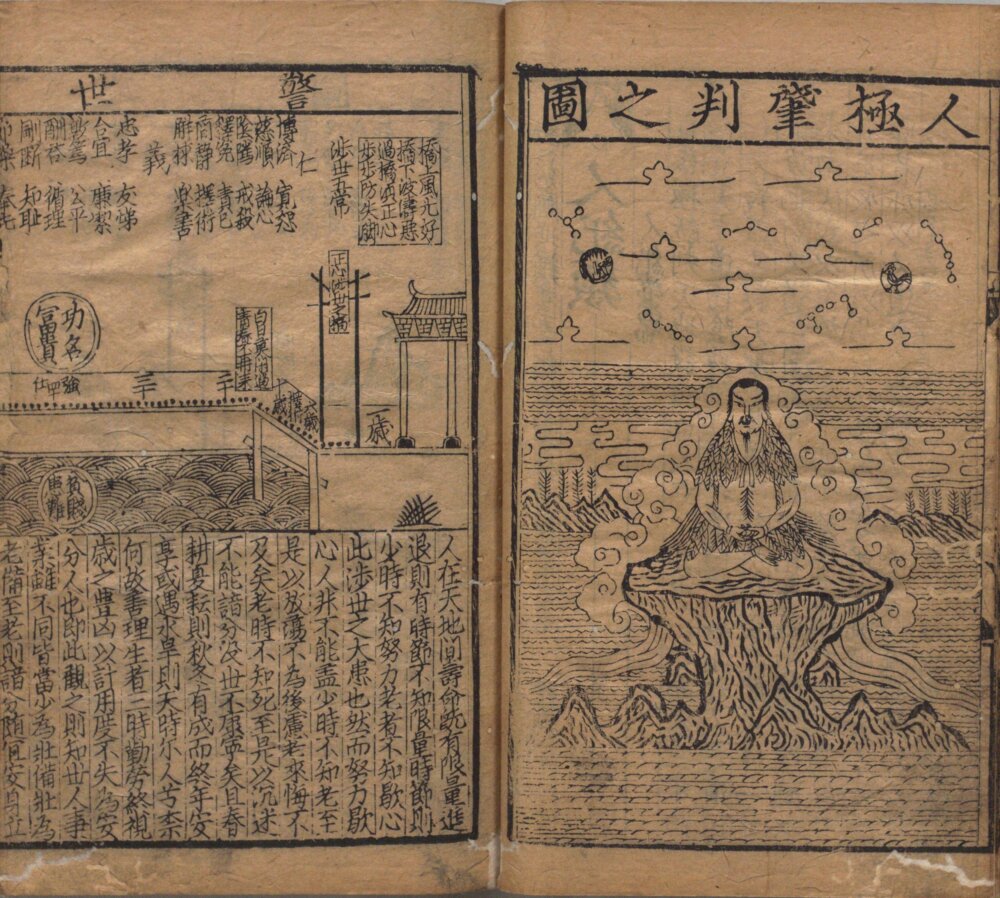 人極肇判之圖
警世
橋上風光好
橋下波濤惡
過橋須正心
步步防失脚
涉世五常
仁
博濟 寬恕
慈順 論心
陰騭 戒殺
義
忠孝 友悌
合宜 廉潔
公平
酬答 循理
剛斷 知恥
正心涉世之橋
一歲
二十
三十
強
四十
仕
功名
富貴
貧賤
患難
人在天地間壽命既有限量進
退則有時節不知限量時節則
少時不知努力老者不知歇心
此涉世之大患也然而努力歇
心人井不能盖少時不知老至
是以放蕩不為後慮老來悔不
及矣老時不知死至是以沉迷
不能諳分沒世不康寧矣且春
耕夏耘則秋冬有成而終年安
享或遇水旱則天時尓人苦柰
何故善理生者二時勤勞終視
歲之豊凶以計用度不失為安
分人也即此觀之則知世人事
業雖不同皆當少為壯備壯為
老備至老則諳分随宜安自在